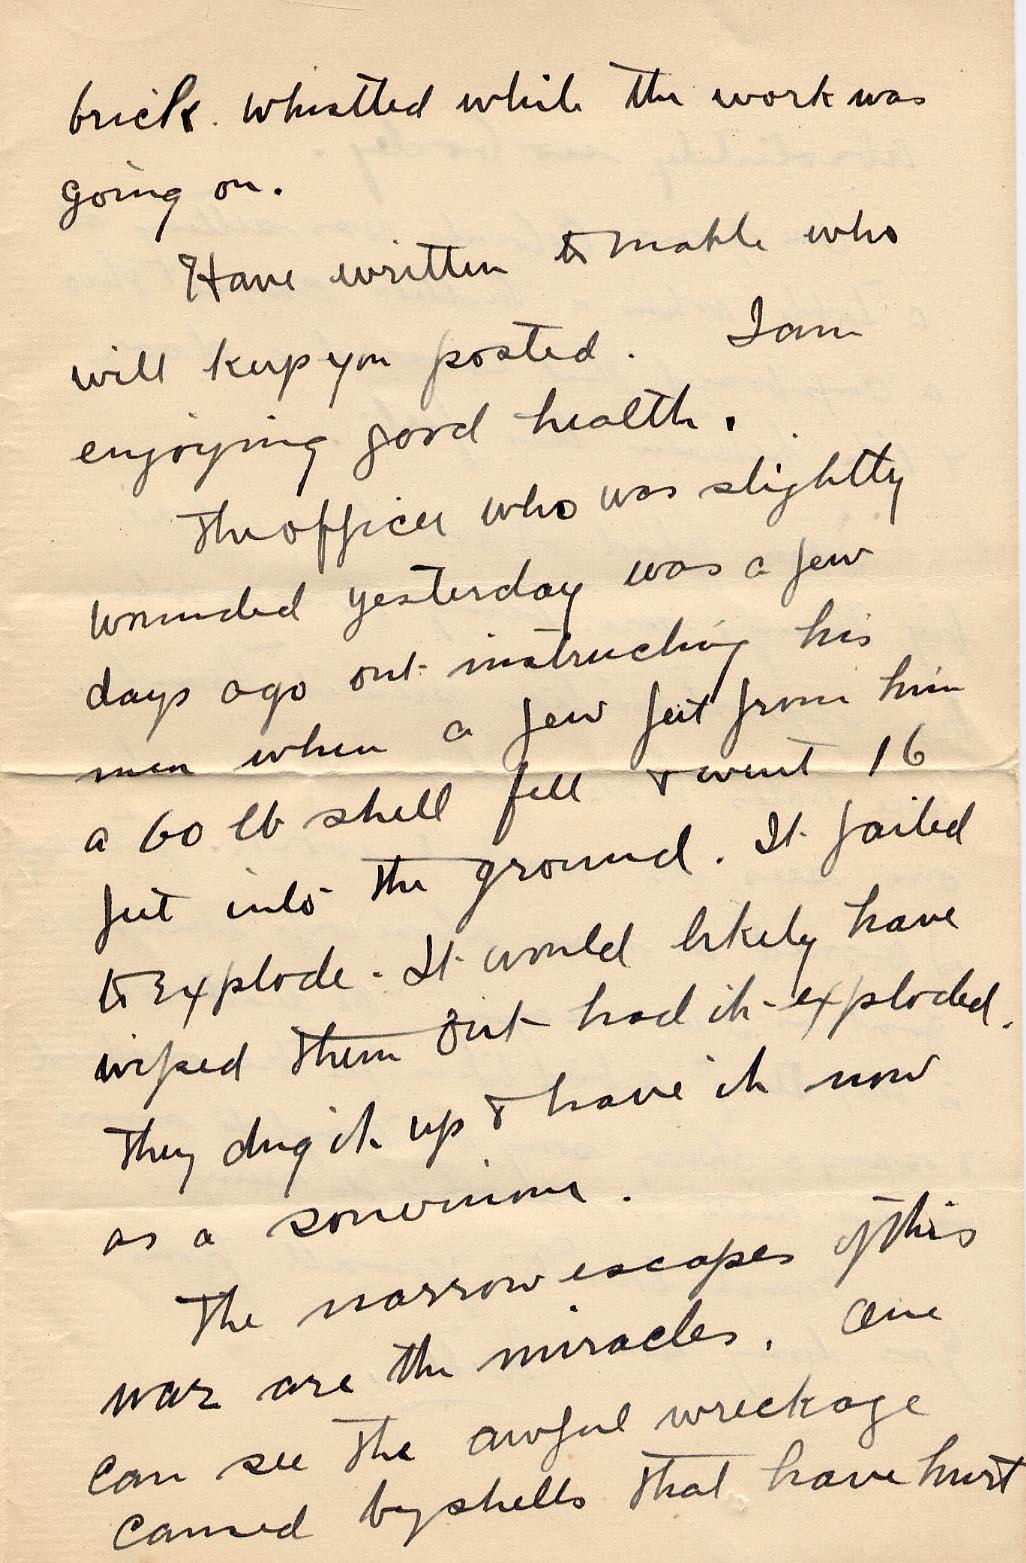 brick. Whistled while the work was
going on.
Have written to Mable who
will keep you posted. I am
enjoying good health.
The officer who was slightly
wounded yesterday was a few
days ago out instructing his
men when a few feet from him
a 60 lb shell fell & went 16
feet into the ground. It failed
to explode. It would likely have
wiped them out had it exploded.
They dug it up & have it now
as a souvenir.
The narrow escapes of this
war are the miracles. One
can see the awful wreckage
caused by shells that have hurt